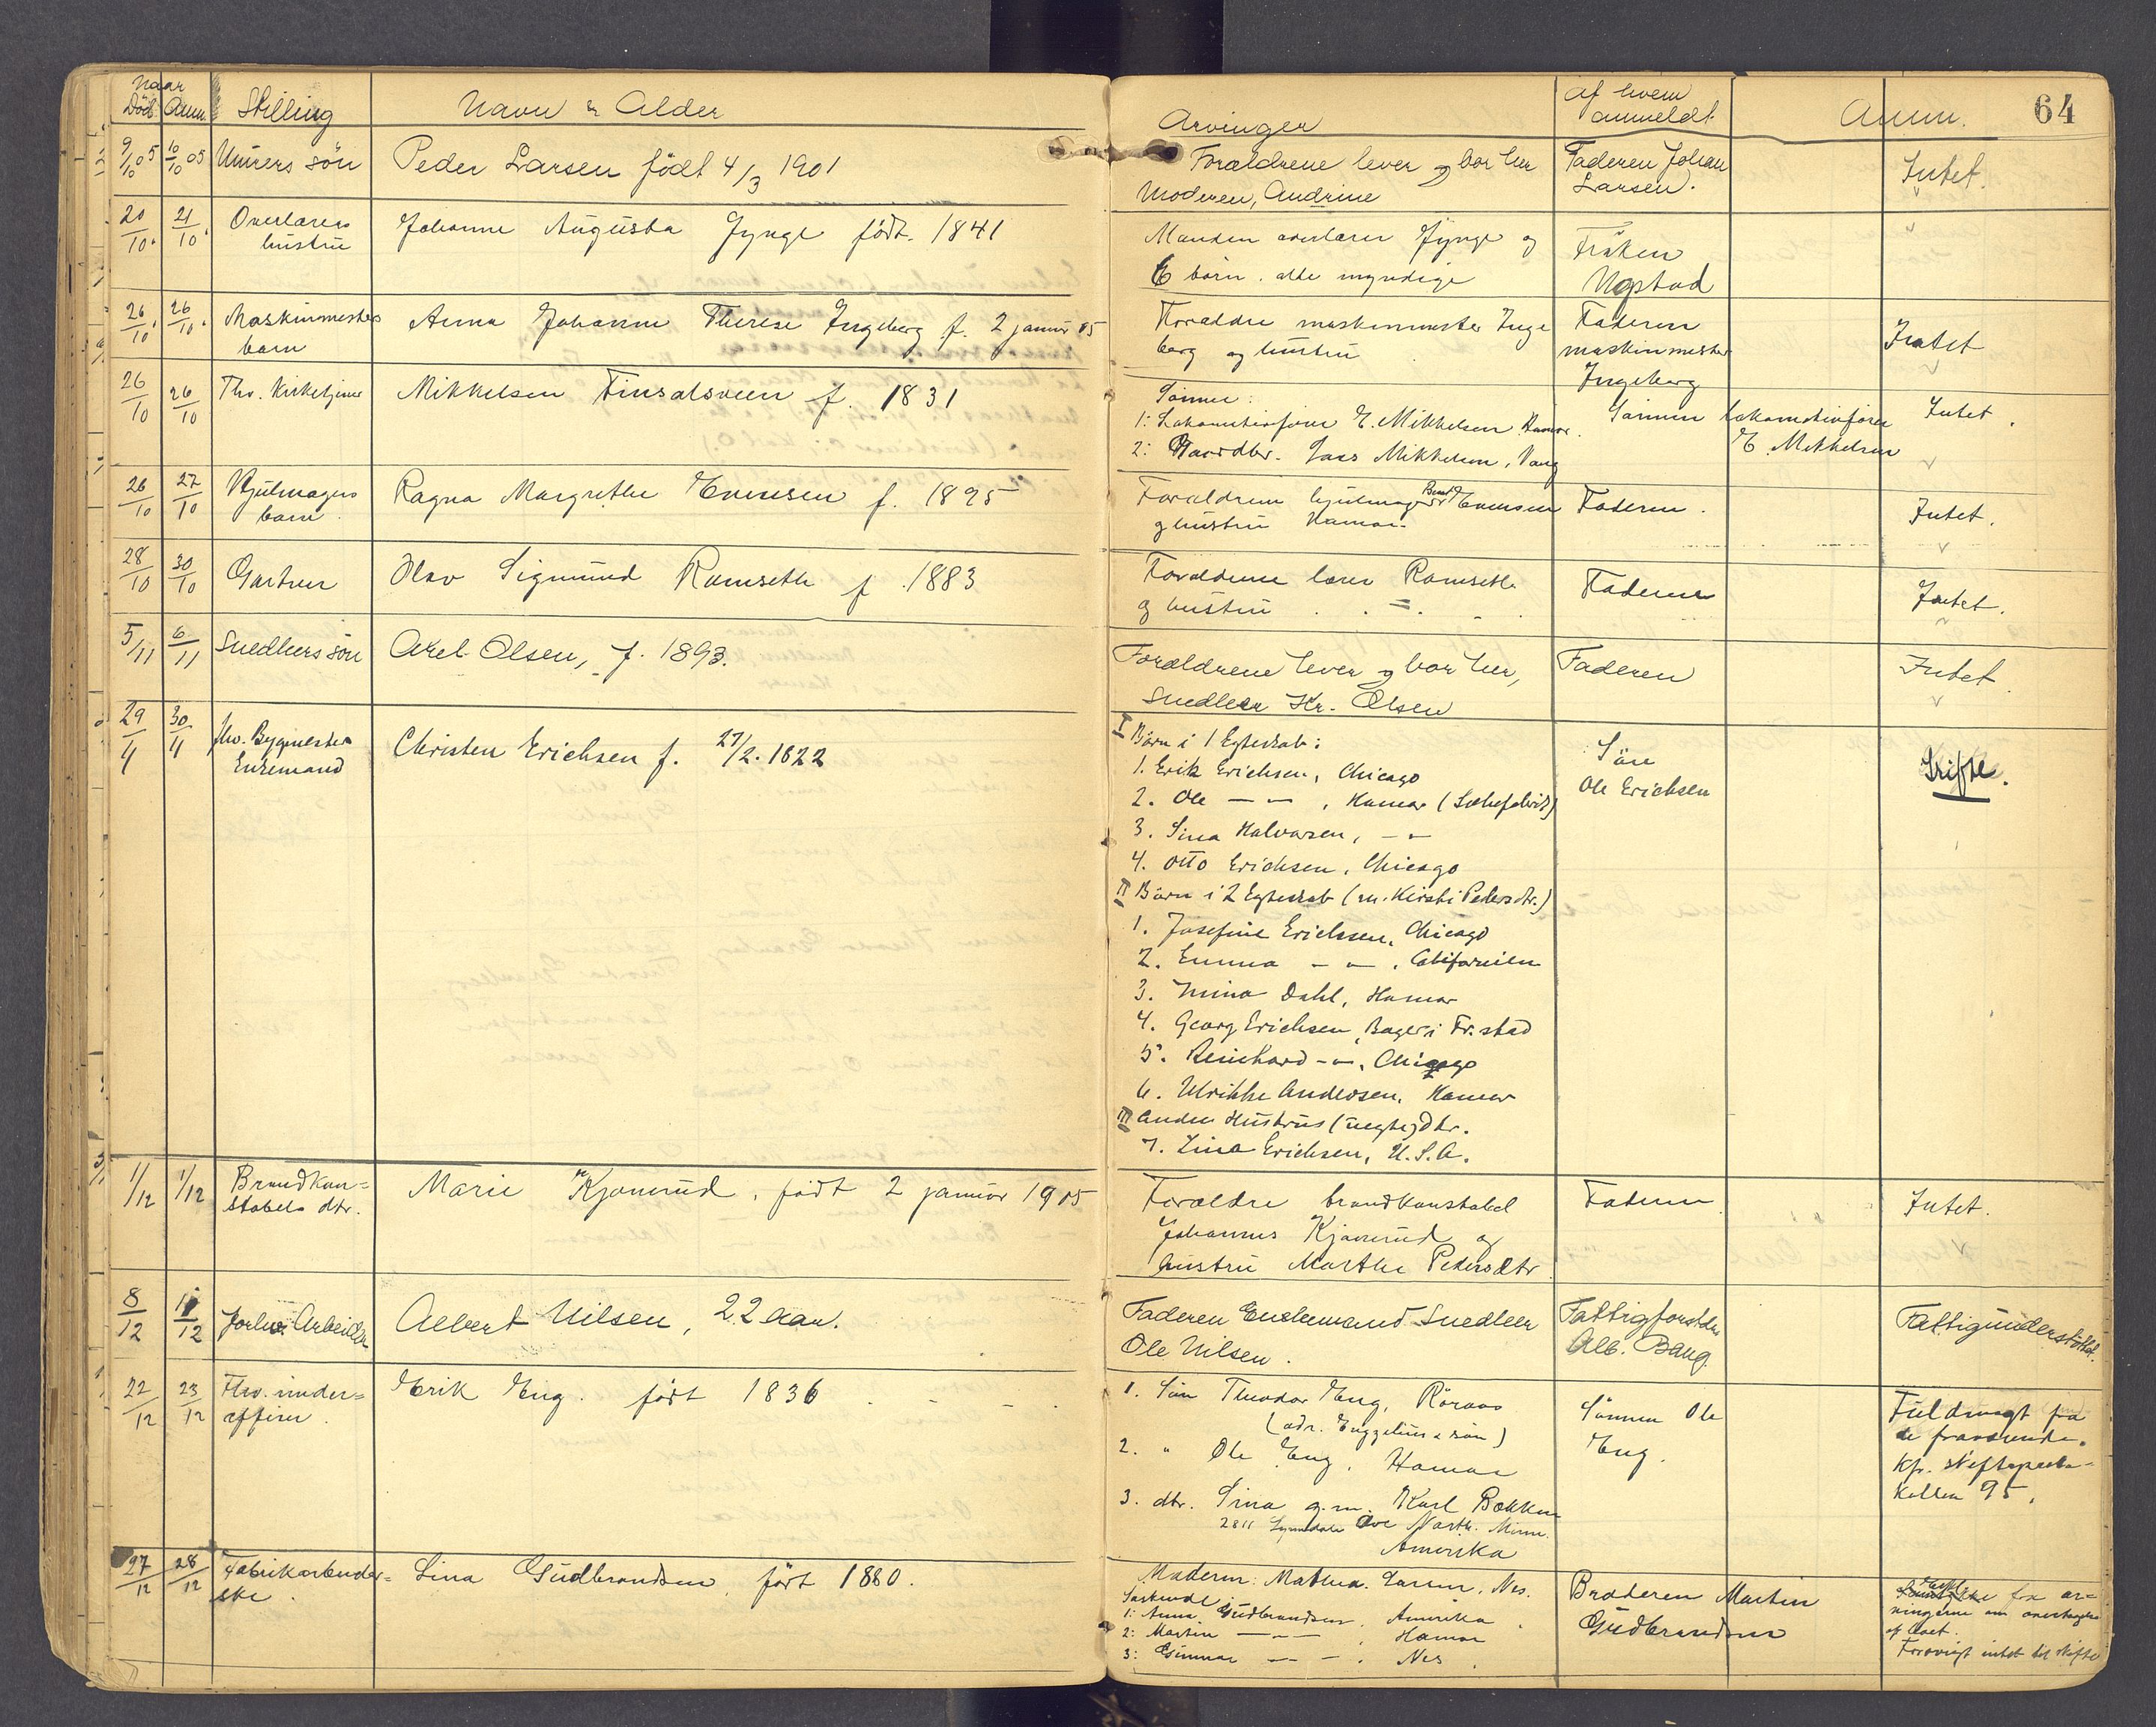 Naar
Död Anm. Stilling Navn & Alder Arvinger af hvem anmeldt Anm. 64
9/10 05 10/10 05 Murers sön Peder Larsen födt 4/3 1901
Forældrene lever og bor her
Moderen, Andrine
Faderen Johan
Larsen.
Intet.
20/10. 21/10. Overlærers
hustru
Johanne Augusta Jynge födt. 1841
Manden overlærer Jynge og
6 börn. alle myndige
Fröken
Ugstad
"
26/10. 26/10. Maskinmesters
barn
Anna Johanne Therese Ingeberg f. 2 januar 05
Forældre maskinmester Inge
berg og hustru
Faderen
maskinmester
Ingeberg
Intet
26/10 26/10 Fhv. Kirketjener Mikkelsen Finsalsveen f. 1831
Sönner:
1: Lokomotivförer E. Mikkelsen Hamar.
2: Gaardbr. Lars Mikkelsen, Vang
Sönnen lokomotivförer
E. Mikkelsen
Intet.
26/10 27/10 Hjulmagers
barn.
Ragna Margrethe Evensen f. 1895
Forældrene hjulmager Evensen
og hustru Hamar.
Faderen.
Intet.
28/10 30/10 Gartner Olav Sigmund Ramseth f. 1883
Forældrene lærer Ramseth
og hustru . . = .
Faderen
Intet.
5/11 6/11 Snedkers sön Axel Olsen, f. 1893.
Forældrene lever og bor her,
Snedker Kr. Olsen
Faderen
Intet.
29/11 30/11 fhv. Bygmester
Enkemand
Christen Erichsen f. 27/2. 1822
I Börn i 1 Egteskab:
1. Erik Erichsen, Chicago
2. Ole — " — , Hamar
3. Sina Halvorsen, — " —
4. Otto Erichsen, Chicago
II Börn i 2 Egteskab (m. Kirsti Pedersdtr.)
1. Josefine Erichsen, Chicago
2. Emma — " — , Californien
3. Mina Dahl, Hamar
4. Georg Erichsen, Bager i Fr.stad
5. Reinhard — " —, Chicago
6. Ulrikke Andersen, Hamar
III Anden Hustrus (uegte) Dtr.
7. Lina Erichsen, U.S.A.
Sön
Ole Erichsen
Skifte.
1/12 1/12 Brandkon=
stabels dtr.
Marie Kjonerud, födt 2 januar 1905
Forældre brandkonstabel
Johannes Kjonerud og
hustru Marthe Pedersdtr
Faderen
Intet.
8/12 11/12 forhv. Arbeider Albert Nilsen, 22 aar.
Faderen Enkemand Snedker
Ole Nilsen.
Fattigforstder
Alb. Bang.
Fattigunderstöttet.
22/12 23/12 Fhv. under=
officer.
Erik Eng. födt 1836
1. Sön Theodor Eng, Röraas
(adr. Engzelius & sön)
2. " Ole Eng, Hamar
3. dtr. Sina g.m. Karl Bakken
2811 Lyndale Ave North. Minn.
Amerika
Sönnen Ole
Eng.
Fuldmagt fra
de fraværende.
Kfr. skifteproto-
kollen 95.
27/12 28/12 Fabrikarbeider=
ske.
Lina Gudbrandsen, födt 1880.
Moderen: Mathea Larsen, Nes.
Söskende:
1: Anna Gudbrandsen, Amerika
2: Martin — " — , Hamar
3: Gunnar — " — , Nes.
Broderen Martin
Gudbrandsen
fra ar=
vingerne om overtagelse
af boet.
Forövrigt intet til skifte